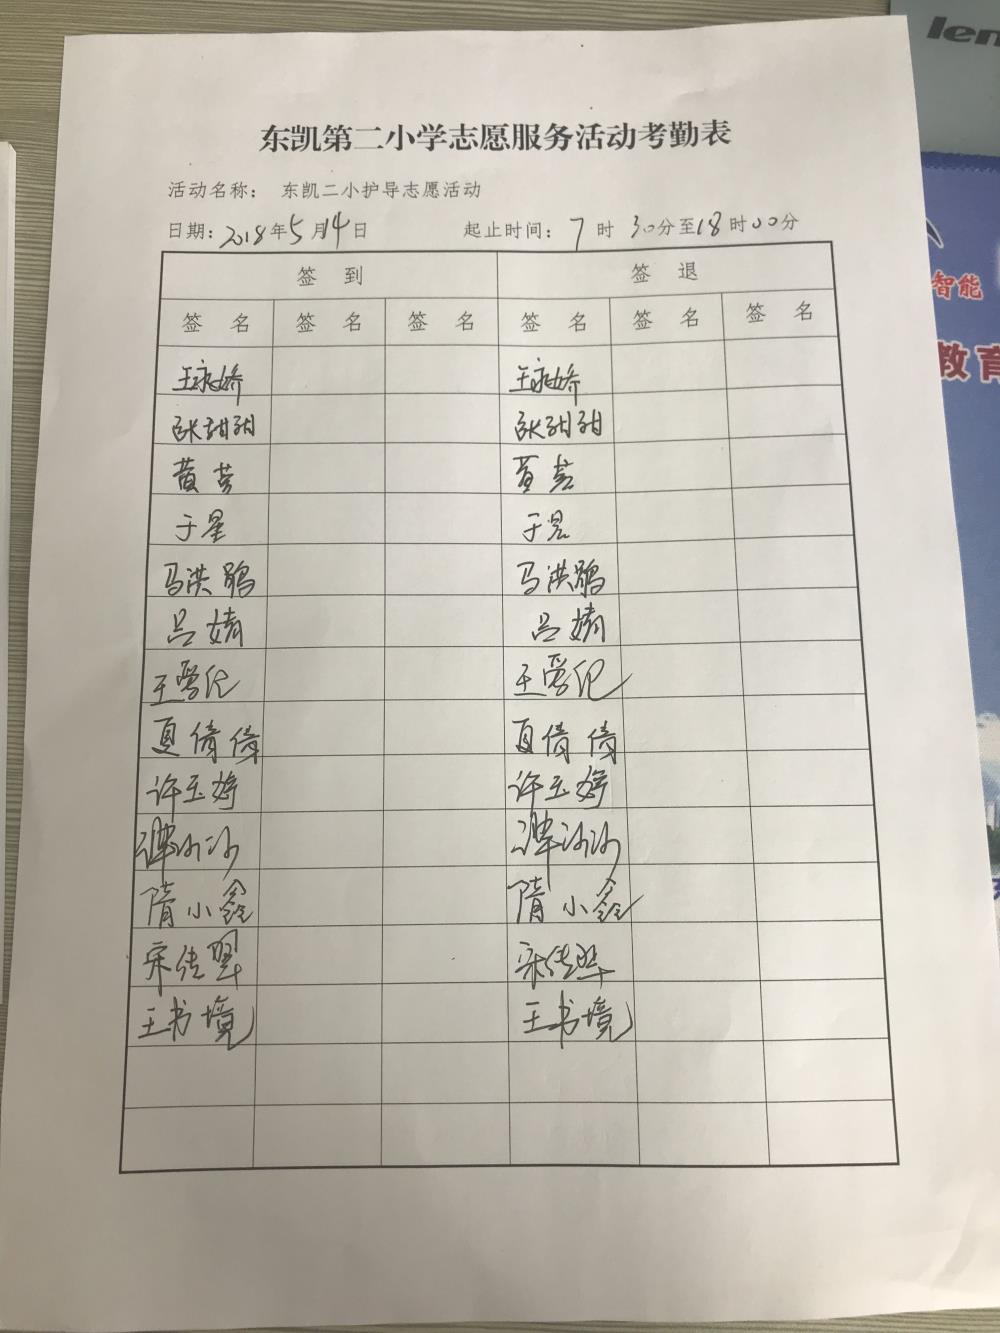 len
东凯第二小学志愿服务活动考勤表
活动名称： 东凯二小护导志愿活动
日期：2018年5月14日 起止时间：7时30分至18时00分
签 到 签 退
签 名 签 名 签 名 签 名 签 名 签 名
王永娇 王永娇
张甜甜 张甜甜
黄芸 黄芸
于星 于星
马洪鹃 马洪鹃
吕婧 吕婧
王 王
夏倩倩 夏倩倩
许玉婷 许玉婷
谭沙沙 谭沙沙
隋小鑫 隋小鑫
宋传翠 宋传翠
王书境 王书境
智能
教育